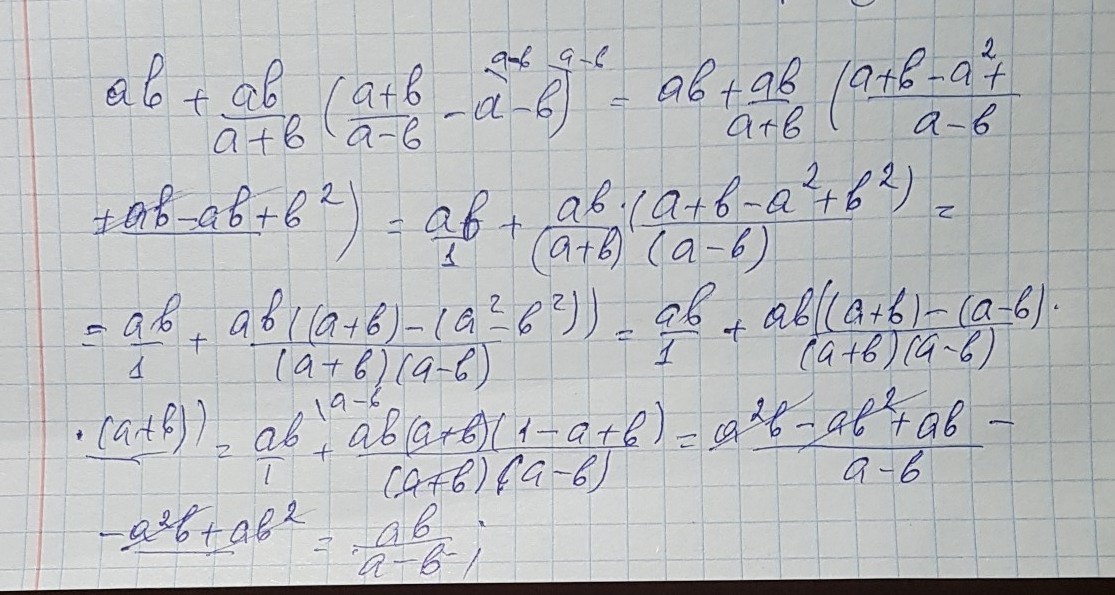 ab + ab/(a+b) ((a+b)/(a-b) - a^{a-b} - b^{a-b}) = ab + ab/(a+b) ((a+b-a²+
+ab-ab+b²)/(a-b)) = ab/1 + ab·(a+b-a²+b²)/((a+b)(a-b)) =
= ab/1 + ab((a+b)-(a²-b²))/((a+b)(a-b)) = ab/1 + ab((a+b)-(a-b)·
·(a+b))/((a+b)(a-b)) = ab/1 \a-b + ab(a+b)(1-a+b)/((a+b)(a-b)) = (a²b-ab²+ab-
-a²b+ab²)/(a-b) = ab/(a-b);